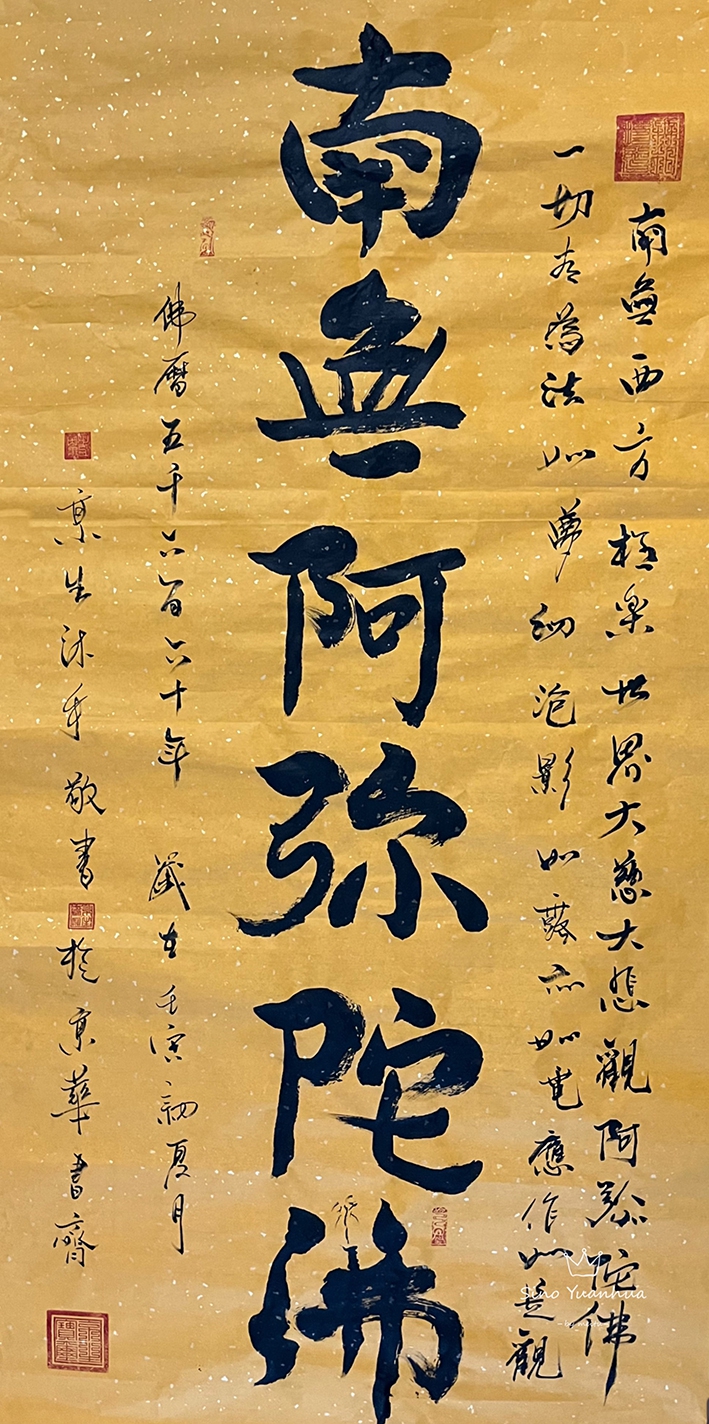 南無西方極楽世界大慈大悲觀阿弥陀佛
一切有為法如夢幻泡影如露亦如電應作如是觀
南無阿弥陀佛
佛曆五千六百六十年 歲在壬寅初夏月
京生沐手敬書於京華書齋
Sino Yuanhua